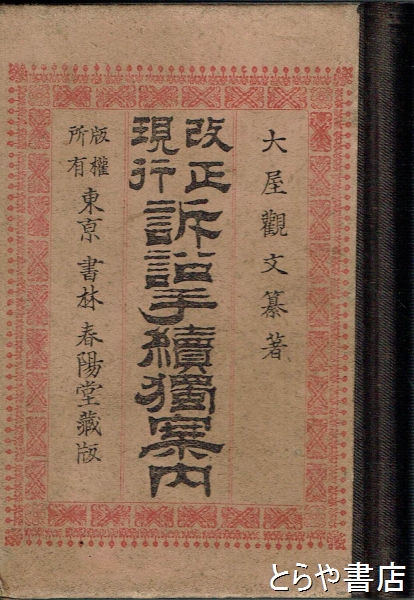 大屋觀文纂著
改正
現行
訴訟手續獨案内
版權
所有
東京 書林 春陽堂藏版
とらや書店